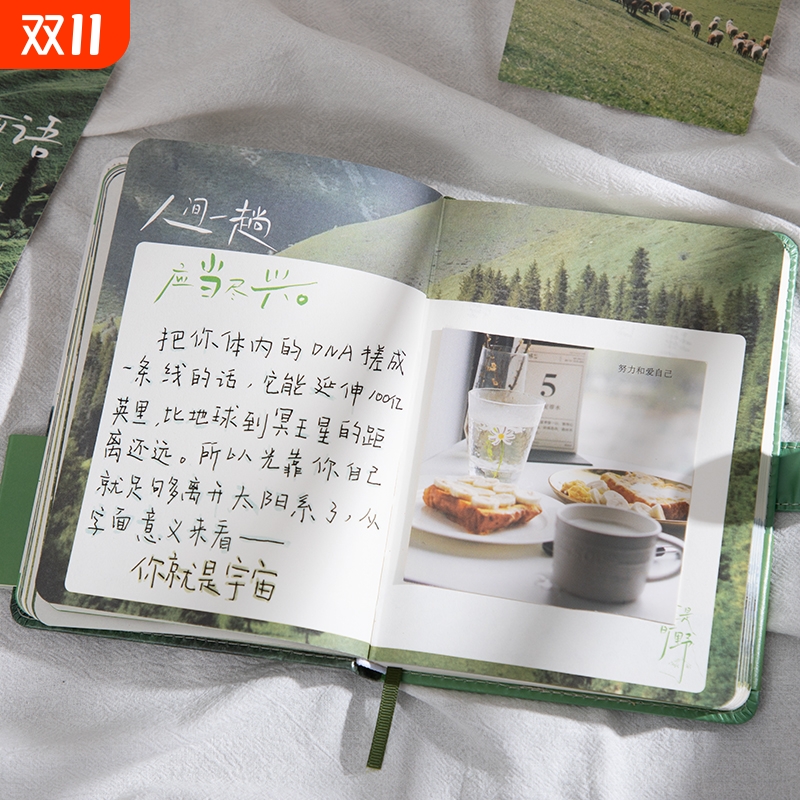 双11
语
人间一趟
应当尽兴。
把你体内的DNA搓成
一条线的话，它能延伸100亿
英里，比地球到冥王星的距
离还远。所以光靠你自己
就足够离开太阳系了，从
字面意义来看——
你就是宇宙
5
努力和爱自己
旷野